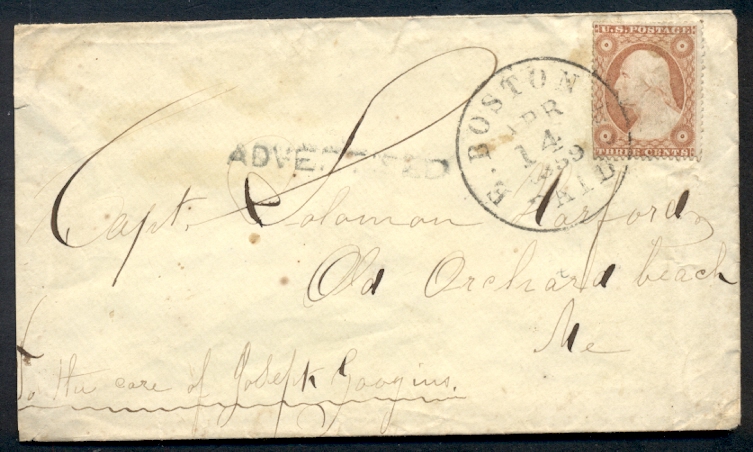 U.S. POSTAGE
THREE CENTS
E. BOSTON
APR
14
1859
PAID
ADVERTISED
Capt. Solomon Harford
Old Orchard beach
Me
To the care of Joseph Googins.